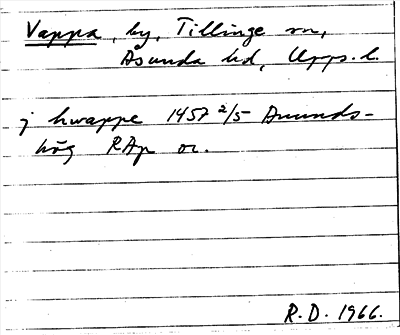 Vappa, by, Tillinge sn,
Åsunda hd, Upps. l.
j hwappe 1457 2/5 Anunds-
hög RAp or.
R.D. 1966.